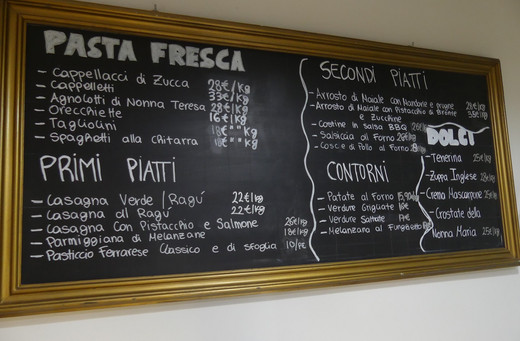 PASTA FRESCA
- Cappellacci di Zucca 28€/Kg
- Cappelletti 33€/Kg
- Agnolotti di Nonna Teresa 28€/Kg
- Orecchiette 16€/Kg
- Tagliolini
- Spaghetti alla chitarra
PRIMI PIATTI
- Casagna Verde/Ragú 22€/kg
- Casagna al Ragú 22€/kg
- Casagna con Pistacchio e Salmone 26€/kg
- Parmiggiana di Melanzane 18€/kg
- Pasticcio Ferrarese Classico e di sfoglia
SECONDI PIATTI
- Arrosto di Maiale con Mandorle e prugne
- Arrosto di Maiale con Pistacchio di Bronte
e Zucchine
- Costine in salsa BBQ
- Salsiccia al Forno
- Cosce di Pollo al Forno
CONTORNI
- Patate al Forno
- Verdure Grigliate
- Verdure Saltate
- Melanzane al Funghetto
DOLCI
- Tenerina 25€/kg
- Zuppa Inglese 28€/kg
- Crema Mascarpone
- Crostate della
Nonna Maria 25€/kg